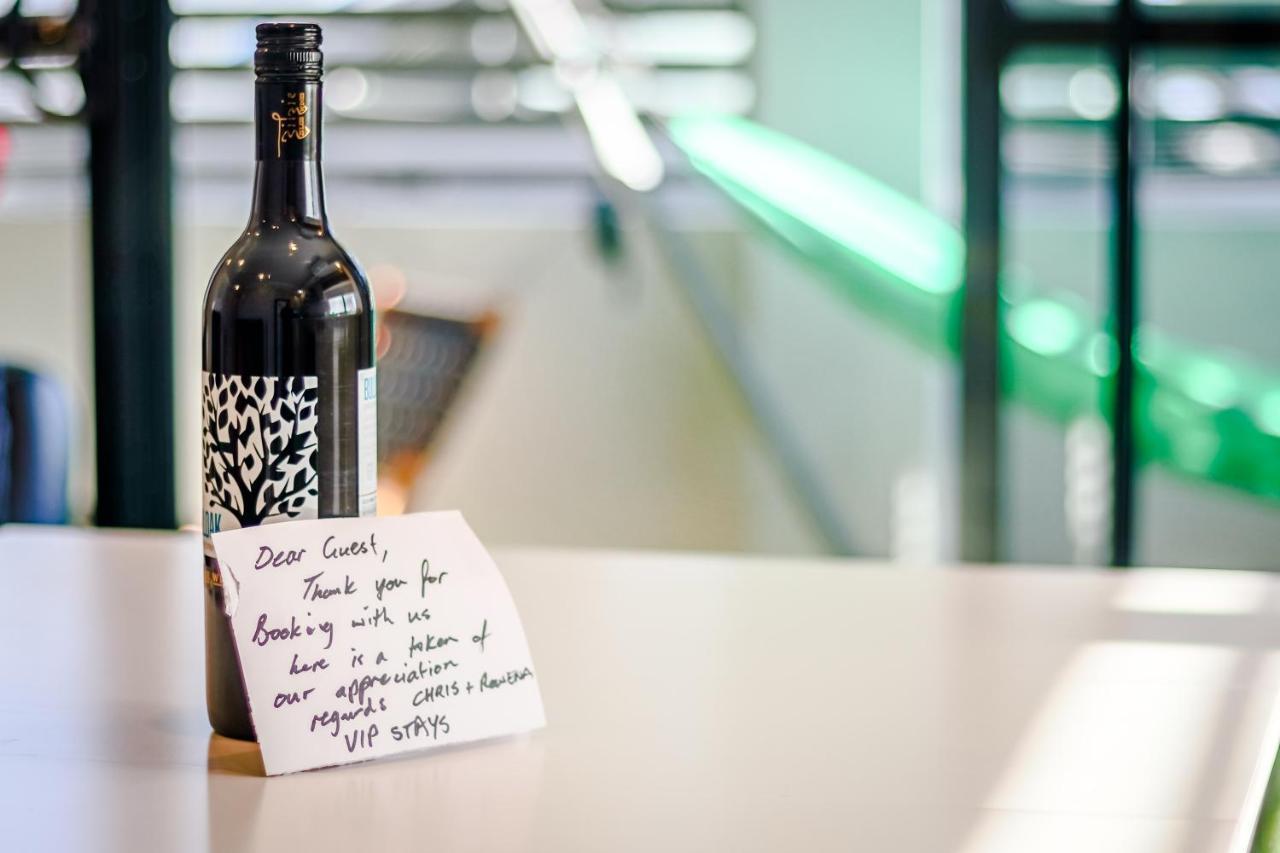 Zilzie
BUL
OAK
Dear Guest,
Thank you for
Booking with us
here is a token of
our appreciation
regards CHRIS + ROWENA
VIP STAYS